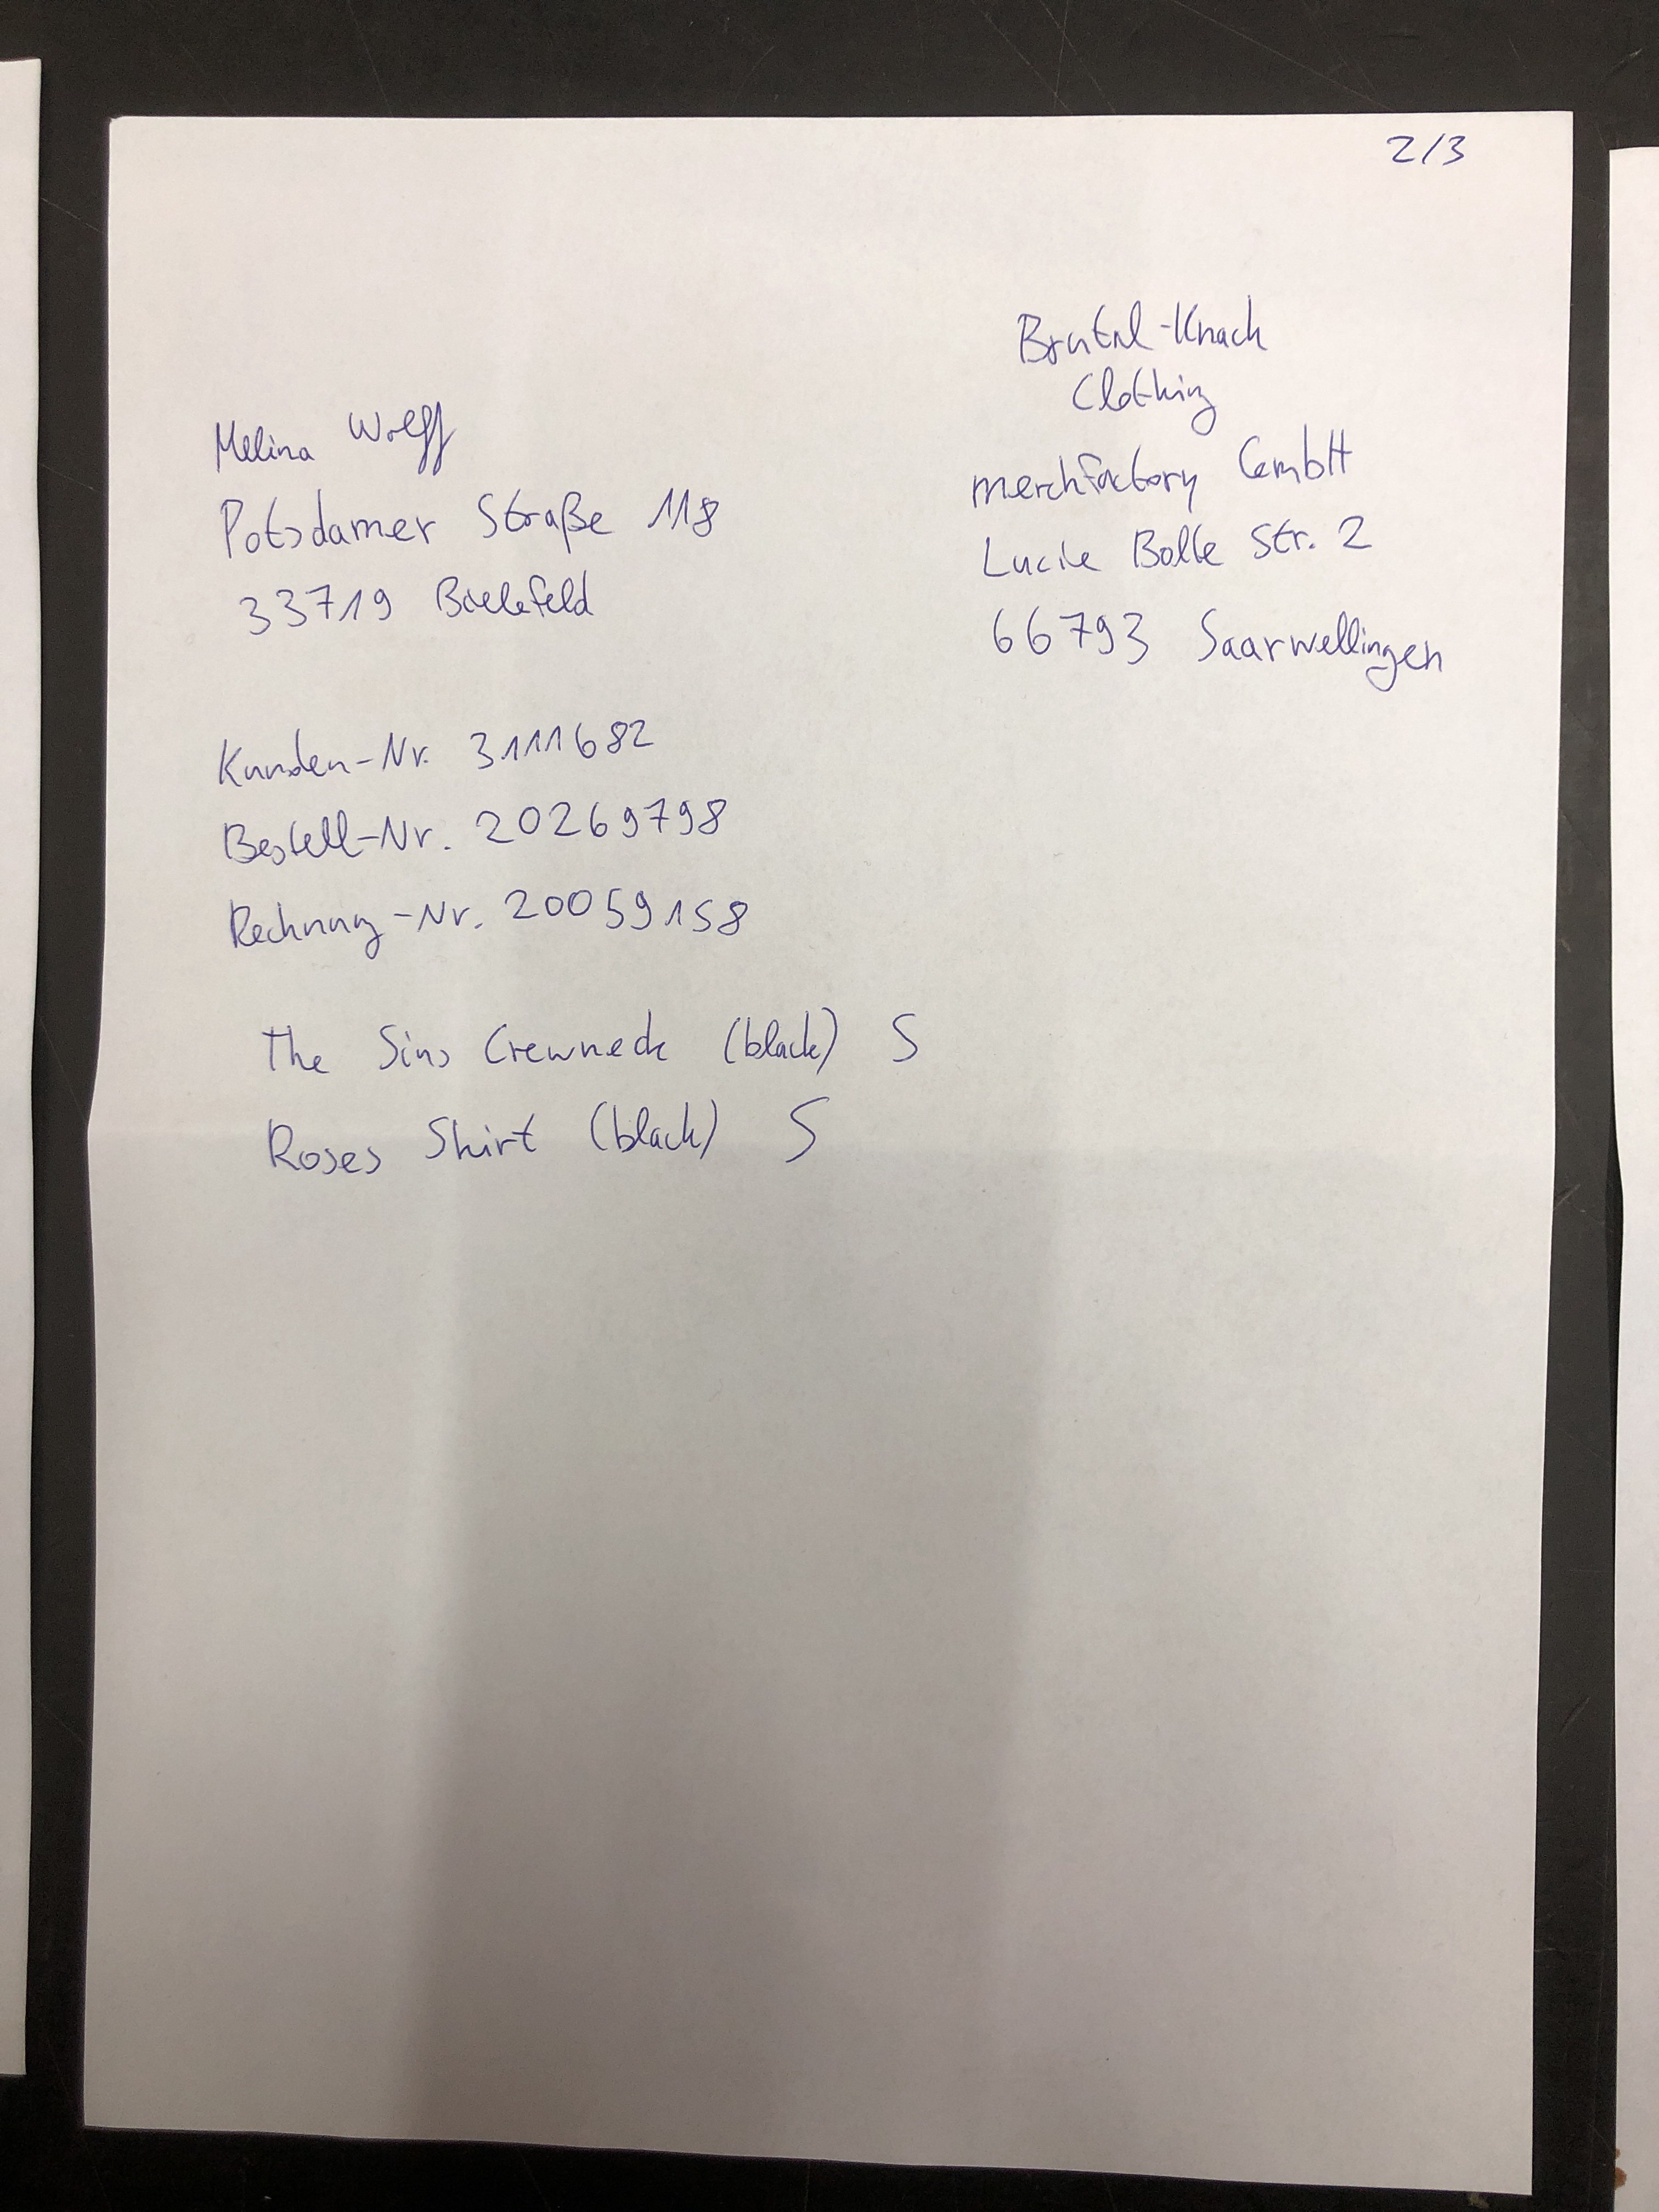 2/3
Melina Wolff
Potsdamer Straße 118
33719 Bielefeld
Brutal-Knack
Clothing
merchfactory GmbH
Lucie Bolle Str. 2
66793 Saarwellingen
Kunden-Nr. 3111682
Bestell-Nr. 20269798
Rechnung-Nr. 20059158
The Sins Crewneck (black) S
Roses Shirt (black) S